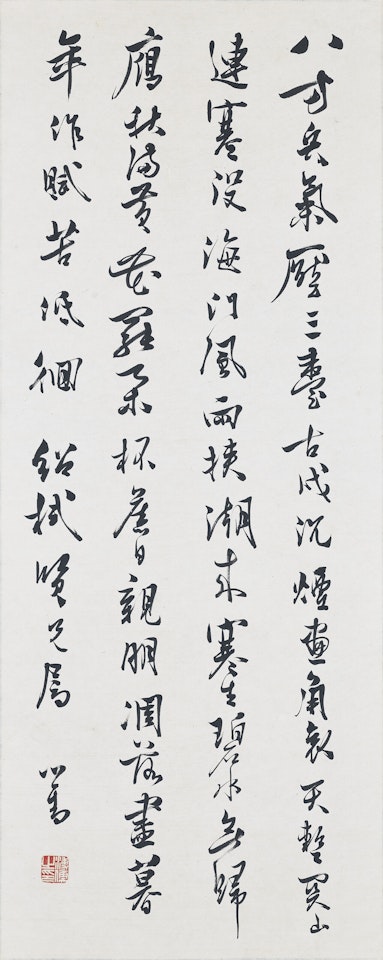 八方兵氣壓三臺古戍沉煙畫角哀天塹關山
連塞沒海門風雨挾潮來寒生碧水無歸
鴈秋滿黃花罷杯舊日親朋凋落盡暮
年作賦苦低徊 紹賢兄屬 心畬